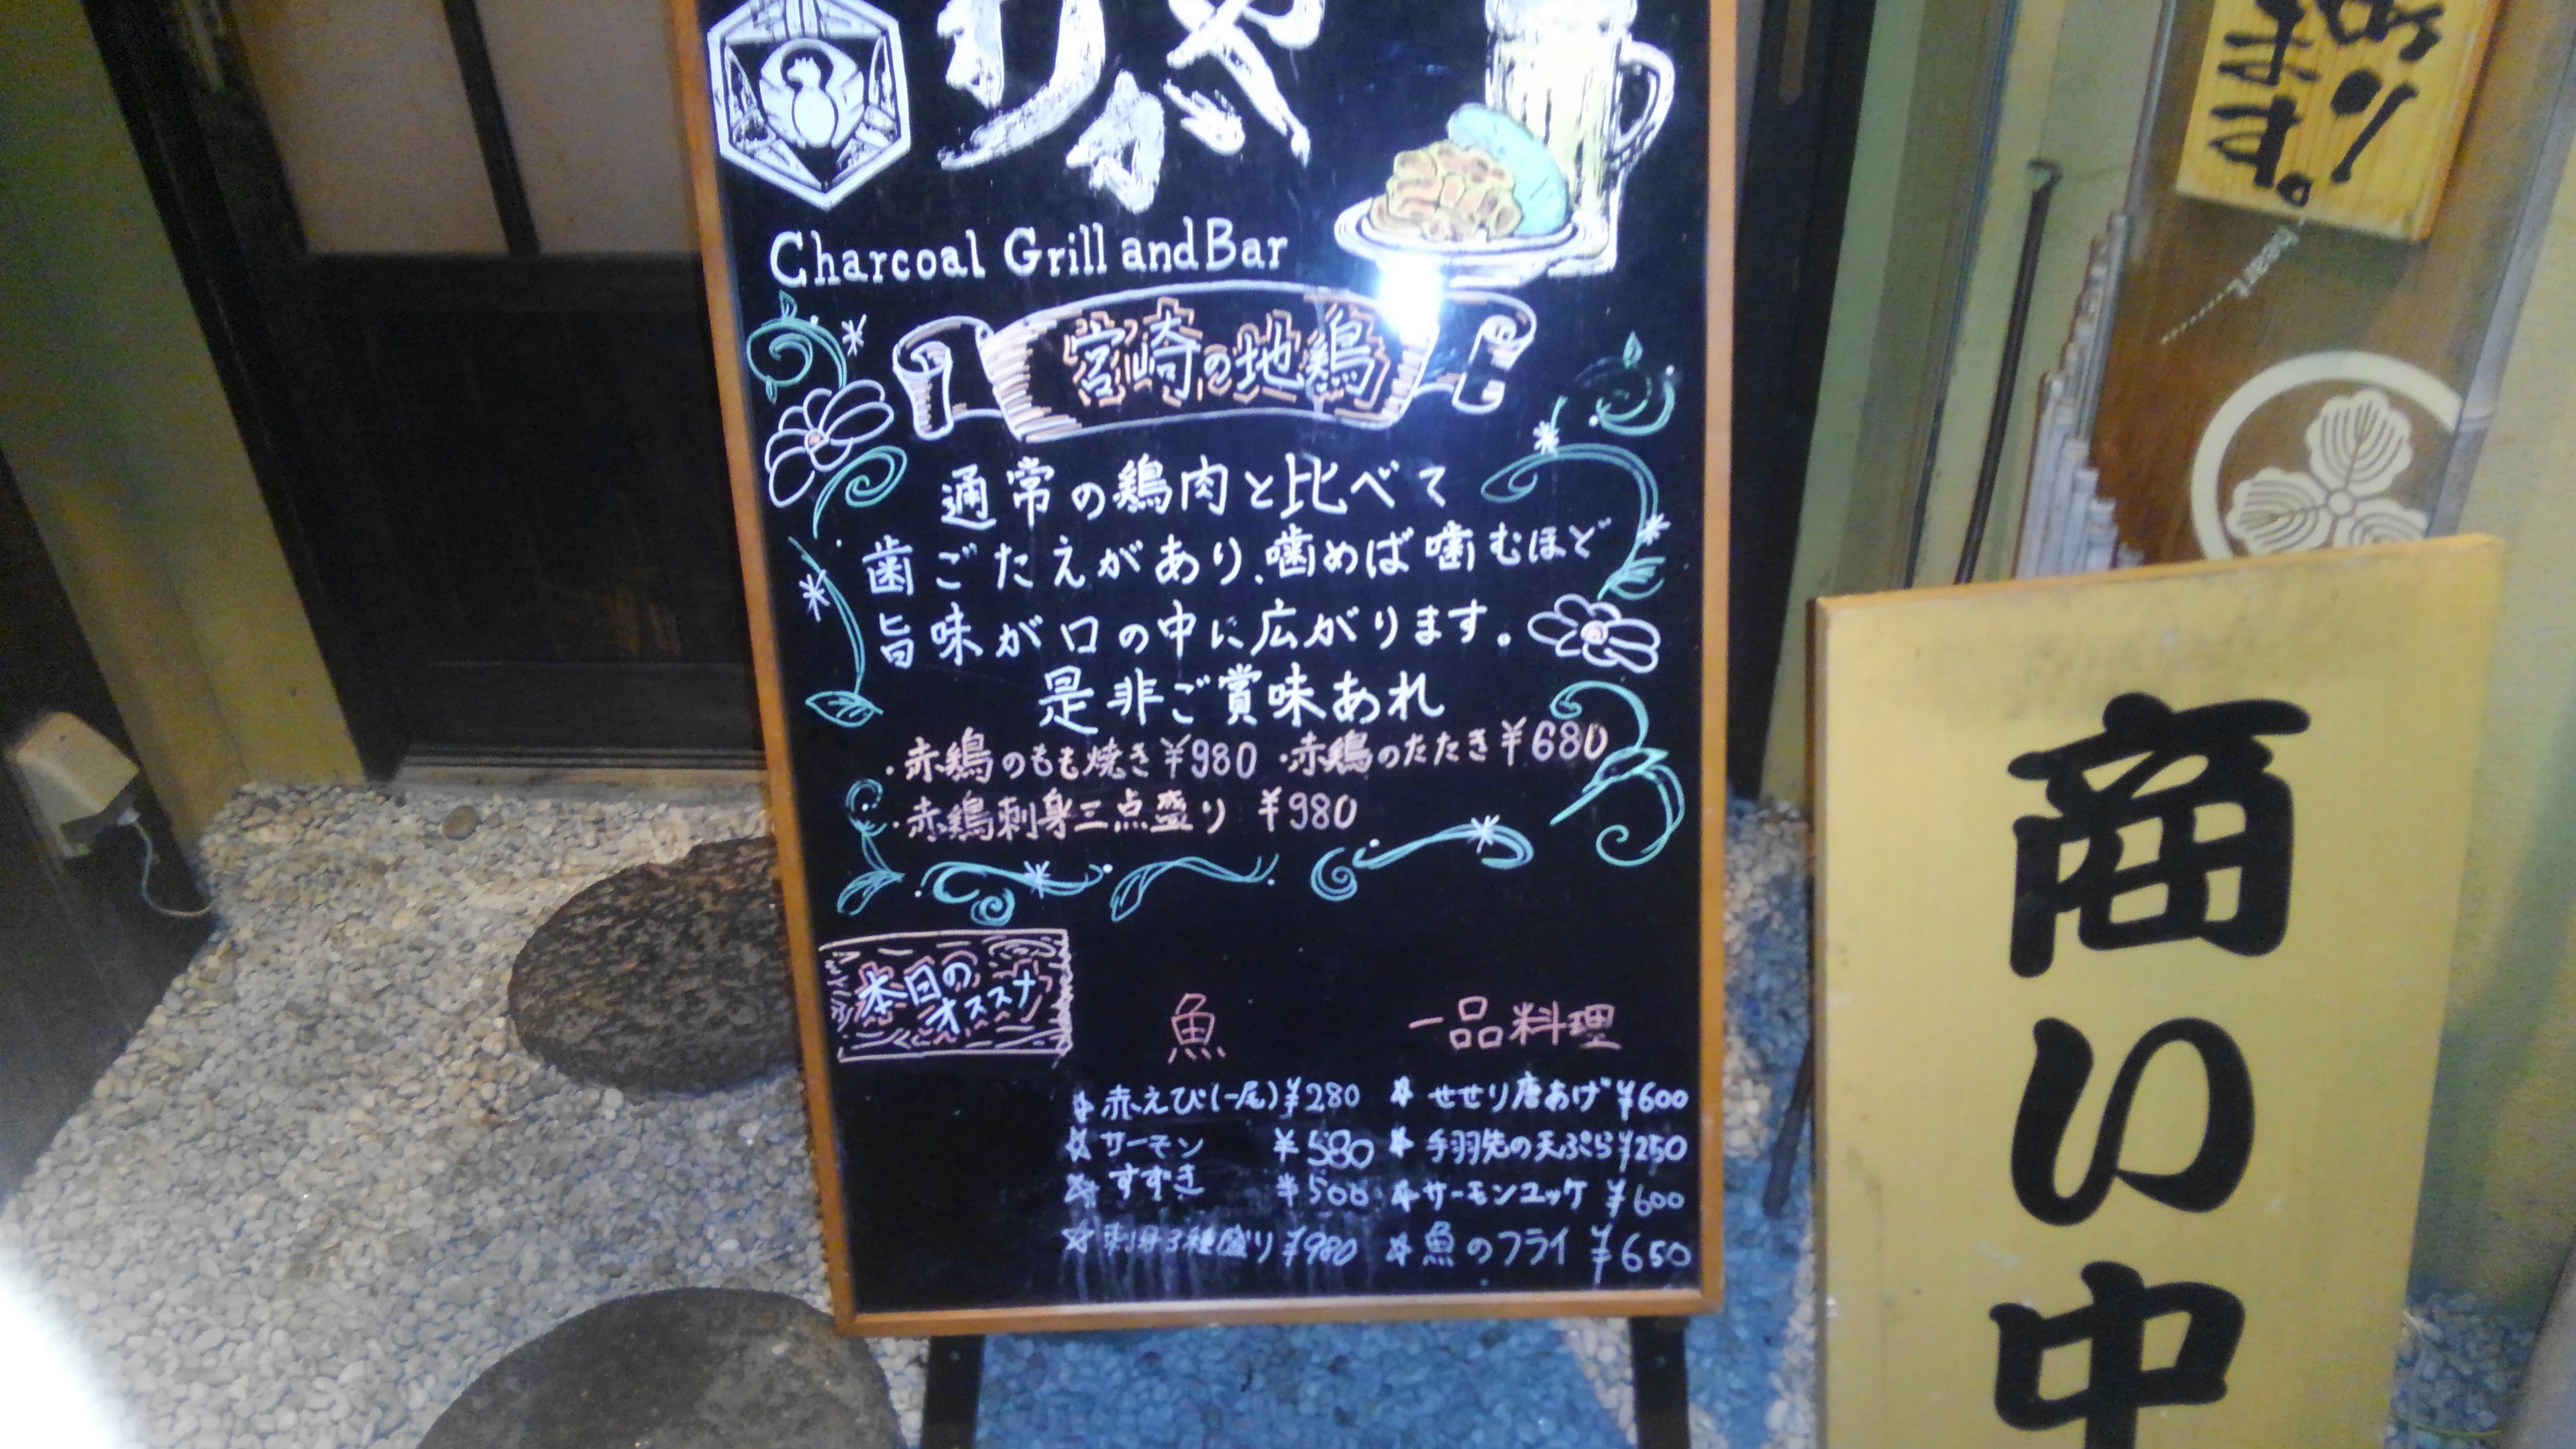 Charcoal Grill and Bar
宮崎の地鶏
通常の鶏肉と比べて
歯ごたえがあり、噛めば噛むほど
旨味が口の中に広がります。
是非ご賞味あれ
・赤鶏のもも焼き ¥980 ・赤鶏のたたき ¥680
・赤鶏刺身三点盛り ¥980
本日の
オススメ
魚
赤えび(一尾) ¥280
サーモン ¥580
すずき ¥500
刺身3種盛り ¥980
一品料理
せせり唐あげ ¥600
手羽先の天ぷら ¥250
サーモンユッケ ¥600
魚のフライ ¥650
ます。
商い中